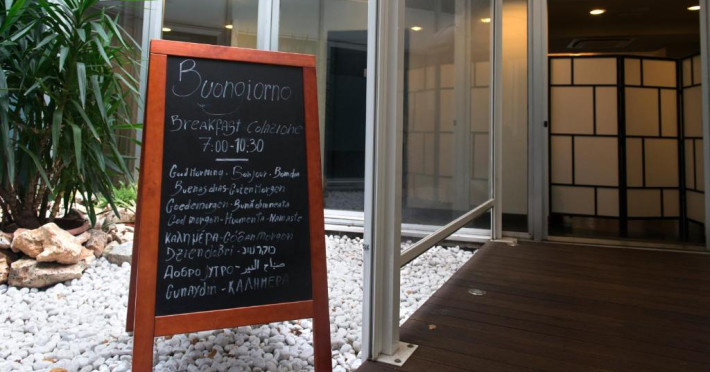 Buongiorno
Breakfast Colazione
7:00-10:30
Good Morning - Bonjour - Bom dia
Buenos dias - Guten Morgen
Goedemorgen - Bună dimineata
God morgen - Huomenta - Namaste
ΚΑΛΗΜΕΡΑ - Goddan morgen
Dzien dobri - בוקר טוב
Добро јутро - صباح الخير
Gunaydin - ΚΑΛΗΜΕΡΑ